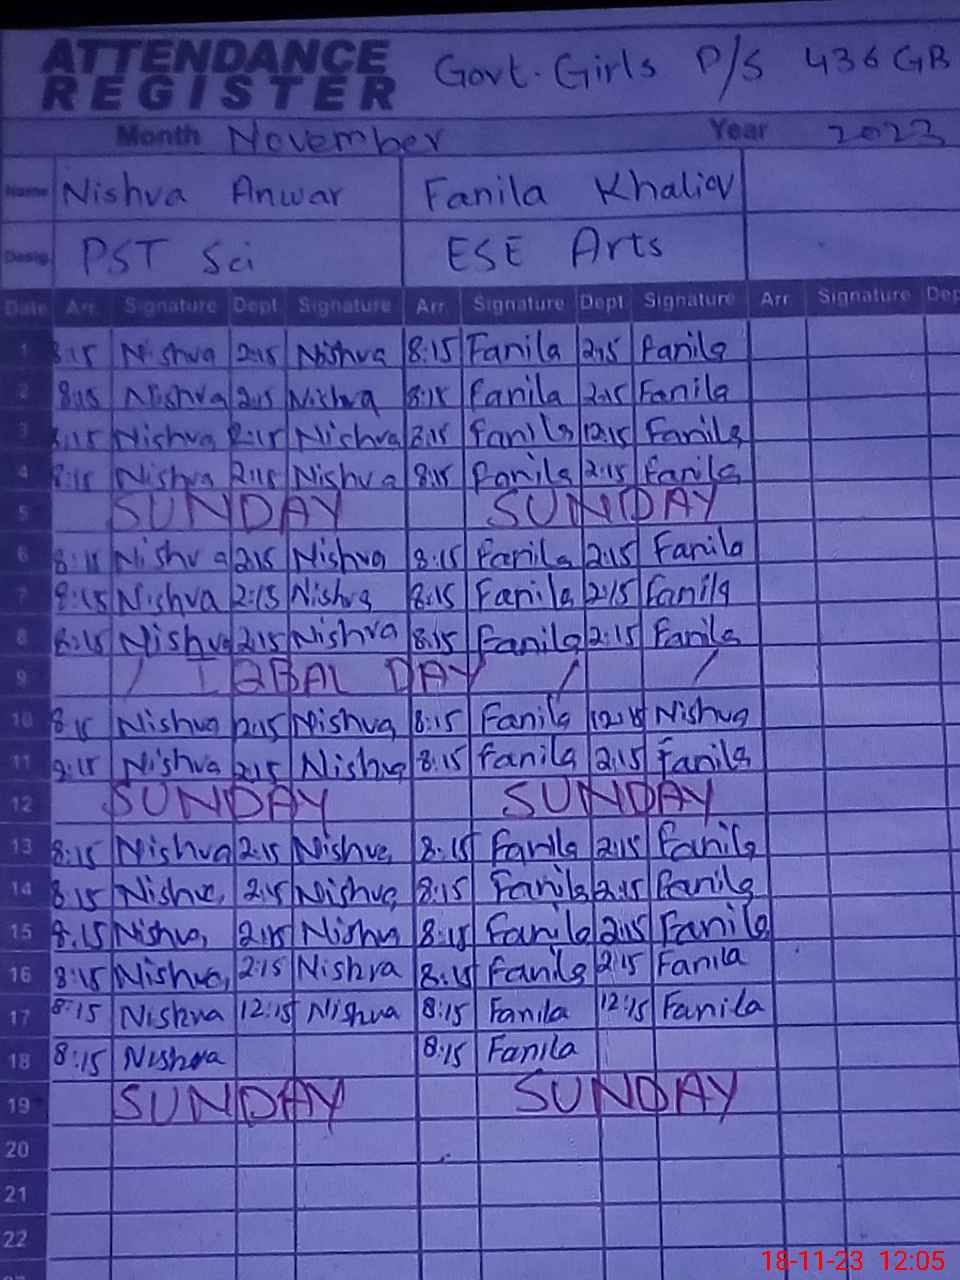 ATTENDANCE REGISTER Govt. Girls P/S 436 GB
Month November Year 2023
Name Nishva Anwar Fanila Khaliq
Desig. PST Sci ESE Arts
Date Arr. Signature Dept Signature Arr. Signature Dept Signature Arr. Signature Dep
1 8:15 Nishva 2:15 Nishva 8:15 Fanila 2:15 Fanila
2 8:15 Nishva 2:15 Nishva 8:15 Fanila 2:15 Fanila
3 8:15 Nishva 2:15 Nishva 8:15 Fanila 12:15 Fanila
4 8:15 Nishva 2:15 Nishva 8:15 Fanila 2:15 Fanila
5 SUNDAY SUNDAY
6 8:15 Nishva 2:15 Nishva 8:15 Fanila 2:15 Fanila
7 8:15 Nishva 2:15 Nishva 8:15 Fanila 2:15 Fanila
8 8:15 Nishva 2:15 Nishva 8:15 Fanila 2:15 Fanila
9 / IQBAL DAY / /
10 8:15 Nishva 2:15 Nishva 8:15 Fanila 12:15 Nishva
11 8:15 Nishva 2:15 Nishva 8:15 Fanila 2:15 Fanila
12 SUNDAY SUNDAY
13 8:15 Nishva 2:15 Nishva 8:15 Fanila 2:15 Fanila
14 8:15 Nishva 2:15 Nishva 8:15 Fanila 2:15 Fanila
15 8:15 Nishva 2:15 Nishva 8:15 Fanila 2:15 Fanila
16 8:15 Nishva 2:15 Nishva 8:15 Fanila 2:15 Fanila
17 8:15 Nishva 12:15 Nishva 8:15 Fanila 12:15 Fanila
18 8:15 Nishva 8:15 Fanila
19 SUNDAY SUNDAY
20
21
22
18-11-23 12:05